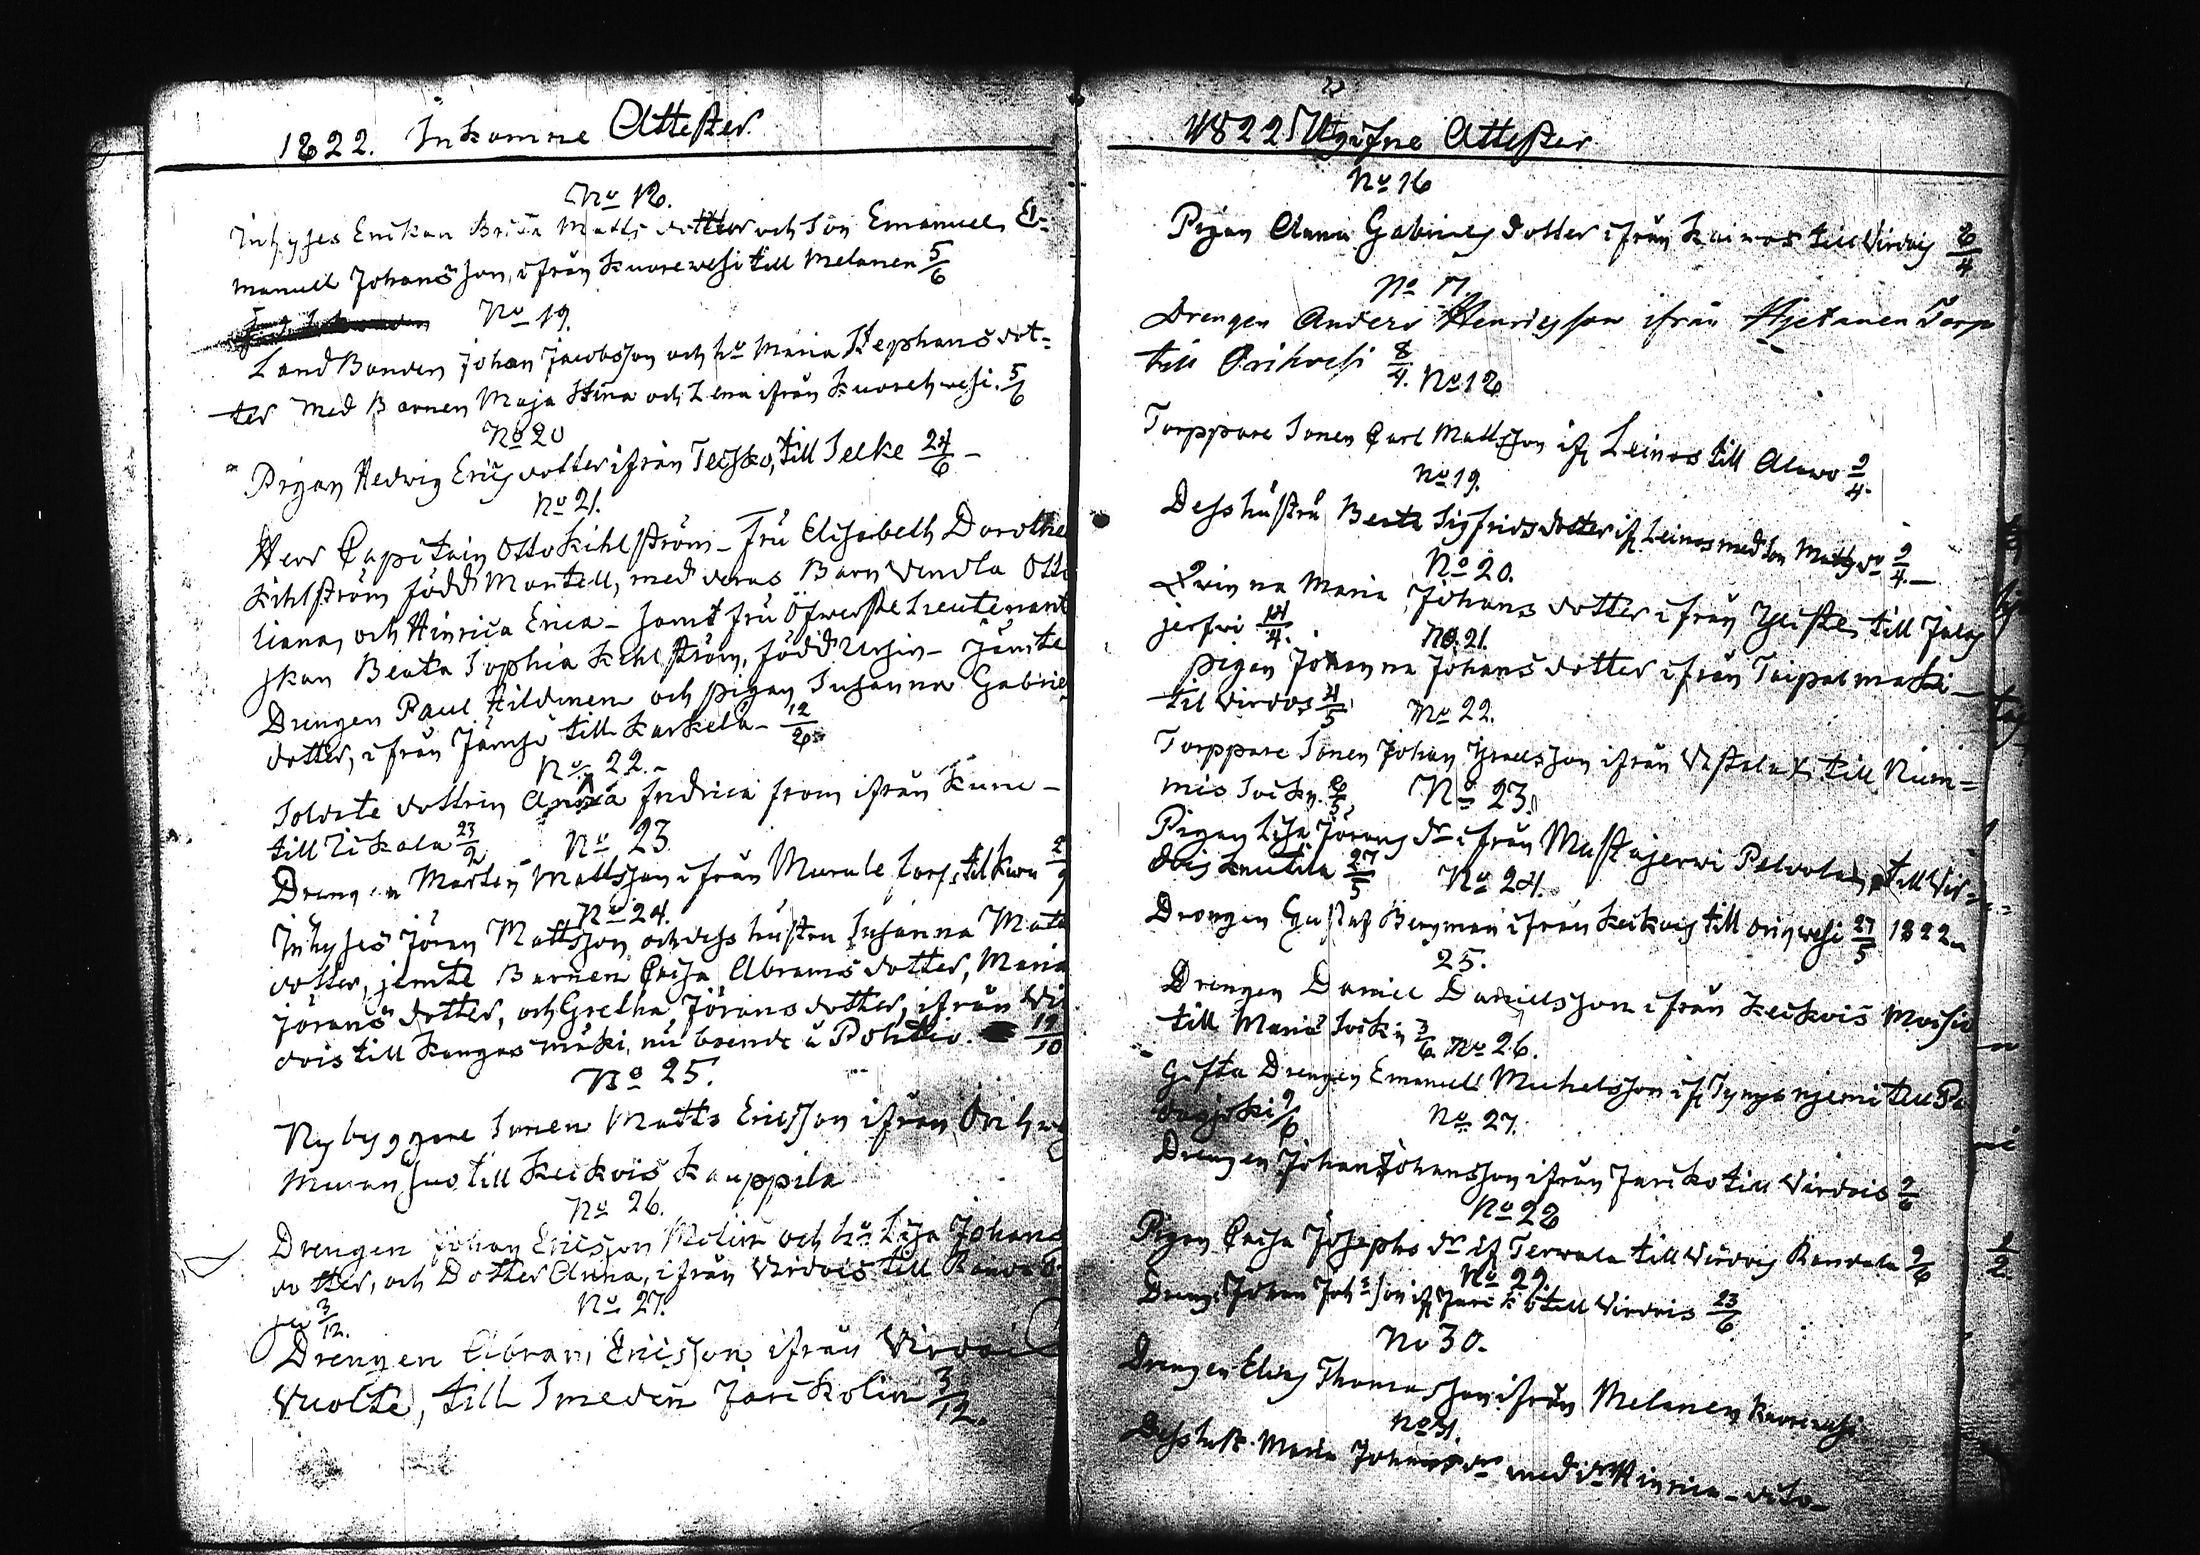 1822. Inkomne Attester
No 18.
Inhyses Enkan Brita Matts dotter och Son Emanuel, E-
manuell Johansson, ifrån Kuorewesi till Melanen 5/6
No 19.
Land Bonden Johan Jacobsson och hu Maria Stephans dot-
ter med Barnen Maja Stina och Lena ifrån Kuorehwesi. 5/6
No 20
Pigan Hedwig Erics dotter ifrån Teisko, till Selke 24/6
No 21.
Herr Capitain Otto Kihlström - Fru Elisabeth Dorothe
Kihlström född Montell, med deras Barn Vendla Otti
liana, och Hinrica Erica - samt fru Öfwerste Lieutenant
skan Beata Sophia Kihlström, född - jämte
Drengen Paul Hildinen och pigan Susanna Gabriels
dotter, ifrån Jämsä till Karkela - 12/26
No 22.
Soldate dottren Anna Fredrica from ifrån Kuru -
till Likala 23/2
No 23
Drengen Marten Mattsson ifrån Murole torp, til Kuru
No 24.
Inhyses Jöran Mattsson och dess hustru Susanna Matts
dotter, jemte Barnen Caisa Abrams dotter, Maria
Jörans dotter, och Gretha Jörans dotter, ifrån Vir
dois till Kangas mäki, nu boende å Pohtio. 19/10
No 25.
Nybyggare Sonen Matts Ericsson ifrån Orihwe
till Keikois Kauppila
No 26.
Drengen Johan Ericsson Molin och hu Lisa Johans
dotter, och Dotter Anna, ifrån Virdois till
3/12.
No 27.
Drengen Abram Ericsson ifrån Virdois
Vuolte, till Smeden Jarikolin 3/12.
1822 Utgifne Attester
No 16
Pigan Anna Gabriels dotter ifrån Kainos till Virdois 6/4
No 17.
Drengen Anders Henricsson ifrån Hjetanen Torp
till Orihvesi 8/4.
No 18
Torppare Sonen Carl Mattsson if Leinos till Alawo 9/4.
No 19.
Dess hustru Beata Sigfrids dotter if Leinos med Son Matts do 9/4.
No 20.
Qvinna Maria Johans dotter ifrån till Jalas
jerfwi 14/4.
No. 21.
pigan Johanna Johans dotter ifrån Taipalmaki
til Virdois 4/5
No 22.
Torppare Sonen Johan Israelsson ifrån till Num-
mis Sockn. 6/5
No 23.
Pigan Lisa Jörans dr ifrån Mustajerwi Palvola, till Vir-
dois Knutila 27/5
No 24.
Drengen Gustaf Bergman ifrån Keikois till Orihvesi 27/5 1822.
25.
Drengen Daniel Daniellsson ifrån Keikois Moisio
till Mariæ Sockn 3/6
No 26.
Gifta Drengen Emanuel Michelsson if till Pa
9/6
No 27.
Drengen Johan Johansson ifrån Jariko till Virdois 9/6
No 28
Pigan Caisa Josephs dr if Terwala till Virdois Randala 9/6
No 29.
Dreng. Johan Johsson if Jariko till Virdois 23/6
No 30.
Drengen Elias Thomasson ifrån Melanen Kuorewesi
No 31.
Dess hust. Maria Johans dr med dr Hinrica - dito